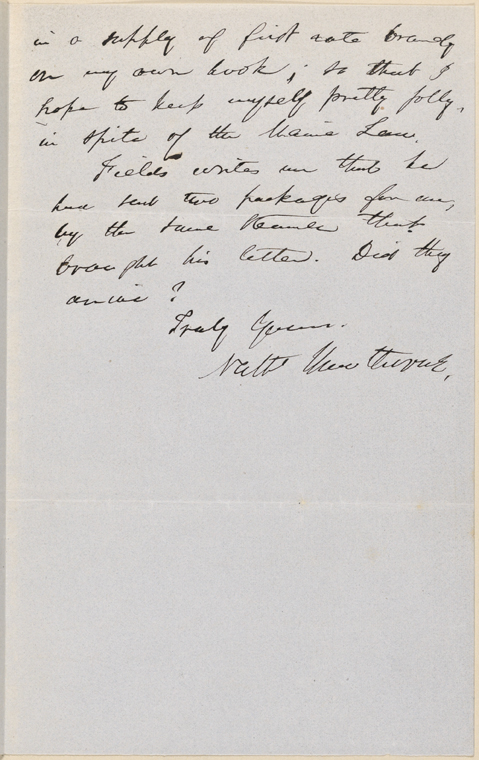 in a supply of first rate brandy
on my own hook; so that I
hope to keep myself pretty jolly,
in spite of the Maine Law.
Fields writes me that he
had sent two packages for me,
by the same steamer that
brought his letter. Did they
arrive?
Truly Yours.
Nathl Hawthorne.